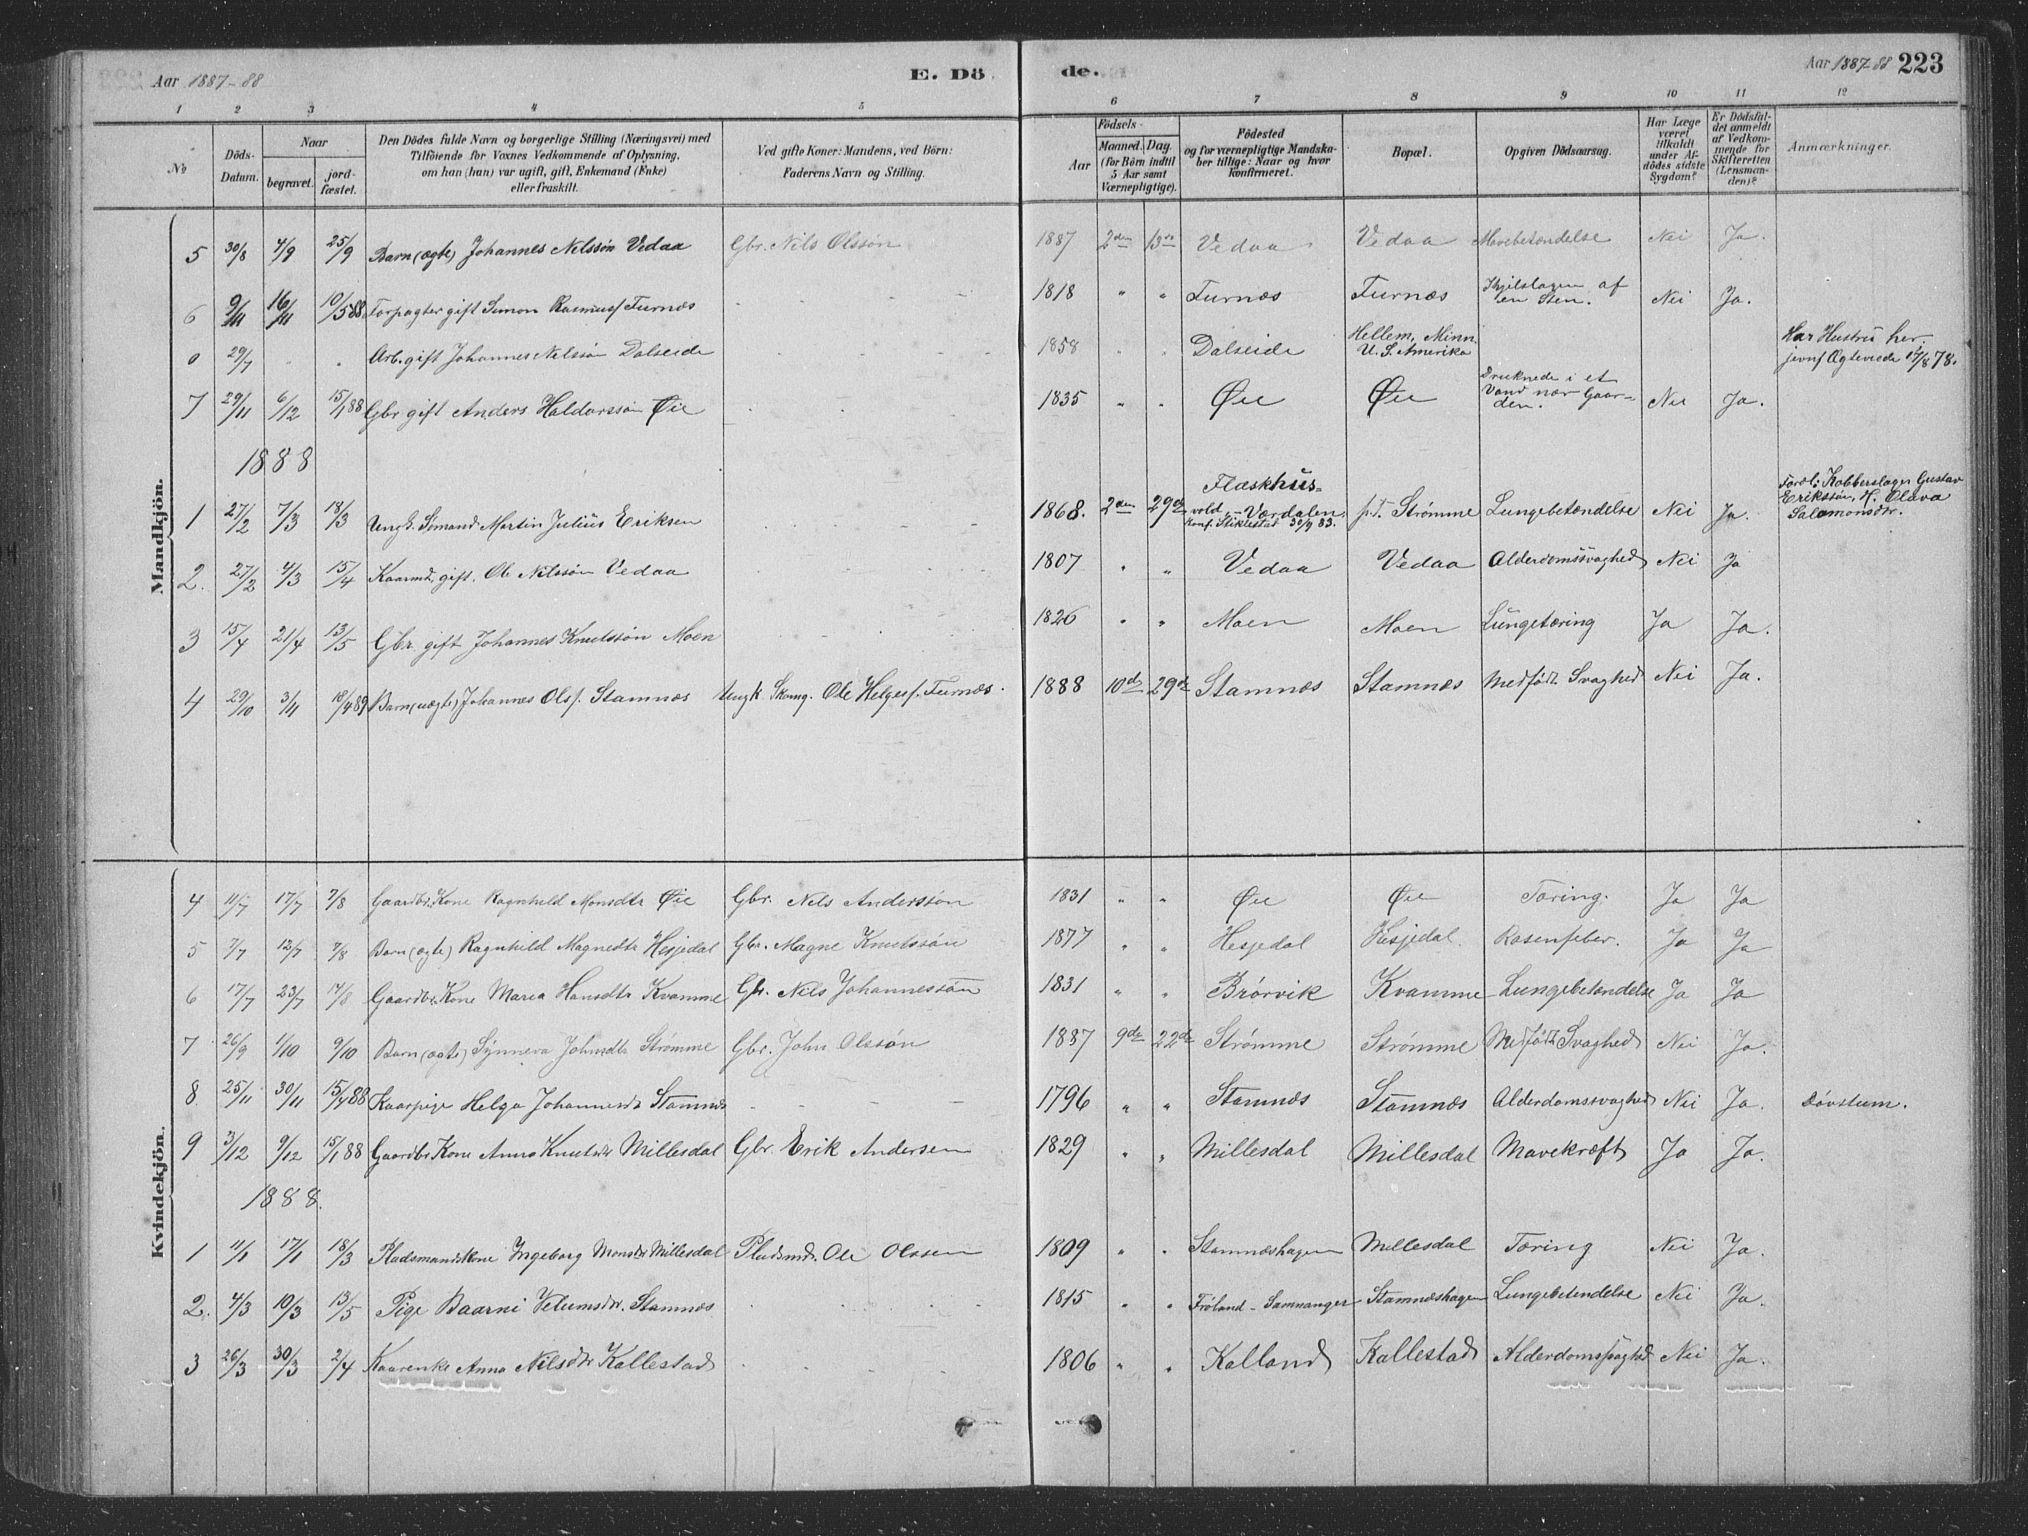 Aar 1887-88 E. Dö
de. Aar 1887-88 223
1 2 3 4 5 6 7 8 9 10 11 12
No
Döds-
Datum.
Naar
begravet.
jord-
fæstet.
Den Dödes fulde Navn og borgerlige Stilling (Næringsvei) med
Tilföiende for Voxnes Vedkommende af Oplysning,
om han (hun) var ugift, gift, Enkemand (Enke)
eller fraskilt.
Ved gifte Koner: Mandens, ved Börn:
Faderens Navn og Stilling.
Födsels-
Aar
Maaned. Dag.
(for Börn indtil
5 Aar samt
Værnepligtige).
Födested
og for værnepligtige Mandska-
ber tillige: Naar og hvor
konfirmeret.
Bopæl.
Opgiven Dödsaarsag.
Har Læge
været
tilkaldt
under Af-
dödes sidste
Sygdom?
Er Dödsfal-
det anmeldt
af Vedkom-
mende for
Skifteretten
(Lensman-
den)?
Anmærkninger.
Mandkjön.
5 30/8 4/9 25/9 Barn (ægte) Johannes Nilssøn Vedaa Gbr. Nils Olssøn 1887 2den 13de Vedaa Vedaa Mavebetændelse Nei Ja.
6 9/11 16/11 10/5 88 Forpagter gift Simon Rasmusf Furnæs 1818 " " Furnæs Furnæs Ihjelslagen af en Sten. Nei Ja.
0 29/7 Arb. gift Johannes Nilssøn Dalseide 1858 " " Dalseide Hellem, Minn. U. S. Amerika Har Hustru her, jevnf Ægteviede 78.
7 29/11 6/12 15/1 88 Gbr gift Anders Haldorssøn Øie 1835 " " Øie Øie Druknede i et Vand nær Gaar-den. Nei Ja.
1888
1 27/2 7/3 18/3 Ungk. Sømand Martin Julius Eriksen 1868. 2den 29de Flaskhus-vold, - Værdalen, konf. Stiklestad 30/9 83. p.t. Strømme Lungebetændelse Nei Ja. Foræl: Kobberslager Gustav Erikssøn, H. Olava Salamonsdtr.
2. 27/2 4/3 15/4 Kaarmd. gift. Ole Nilssøn Vedaa 1807 " " Vedaa Vedaa Alderdomssvaghed Nei Ja
3 15/4 21/4 13/5 Gbr. gift Johannes Knutssøn Moen 1826 " " Moen Moen Lungetæring Ja Ja.
4 29/10 3/11 18/4 89 Barn (uægte) Johannes Olsf. Stamnæs Ungk. Skomg. Ole Helgesf. Furnæs. 1888 10de 29de Stamnæs Stamnæs Medfødt Svaghed Nei Ja.
Kvindekjön.
4 11/7 17/7 7/8 Gaardbr. Kone Ragnhild Monsdtr Øie Gbr. Nils Anderssøn 1831 " " Øie Øie Tæring. Ja Ja
5 7/7 12/7 7/8 Barn (ægte) Ragnhild Magnedtr Hesjedal Gbr. Magne Knutssøn 1877 " " Hesjedal Hesjedal. Rosenfeber. Ja Ja
6 17/7 23/7 14/8 Gaardbr. Kone Maria Hansdtr Kvamme Gbr. Nils Johannessøn 1831 " " Brørvik Kvamme Lungebetændelse Ja Ja
7 26/9 1/10 9/10 Barn (ægte) Synneva Johnsdtr Strømme Gbr. John Olssøn 1887 9de 22de Strømme Strømme Medfødt Svaghed Nei Ja.
8 25/11 30/11 15/4 88 Kaarpige Helga Johannesdtr Stamnæs 1796 " " Stamnæs Stamnæs Alderdomssvaghed Nei Ja. Døvstum.
9 3/12 9/12 15/1 88 Gaardbr. Kone Anna Knutsdtr Millesdal Gbr. Erik Andersen 1829 " " Millesdal Millesdal Mavekræft Ja Ja.
1888.
1 11/1 17/1 18/3 Pladsmandskone Ingeborg Monsdtr Millesdal Pladsmd. Ole Olssen 1809 " " Stamnæshagen Millesdal Tæring Nei Ja.
2. 4/3 10/3 13/5 Pige Baarni Velumsdtr. Stamnæs 1815 " " Frøland - Samnanger Stamnæshagen Lungebetændelse Nei Ja.
3 26/3 30/3 2/4 Kaarenke Anna Nilsdtr Kallestad 1806 " " Kalland Kallestad Alderdomssvaghed Nei Ja.